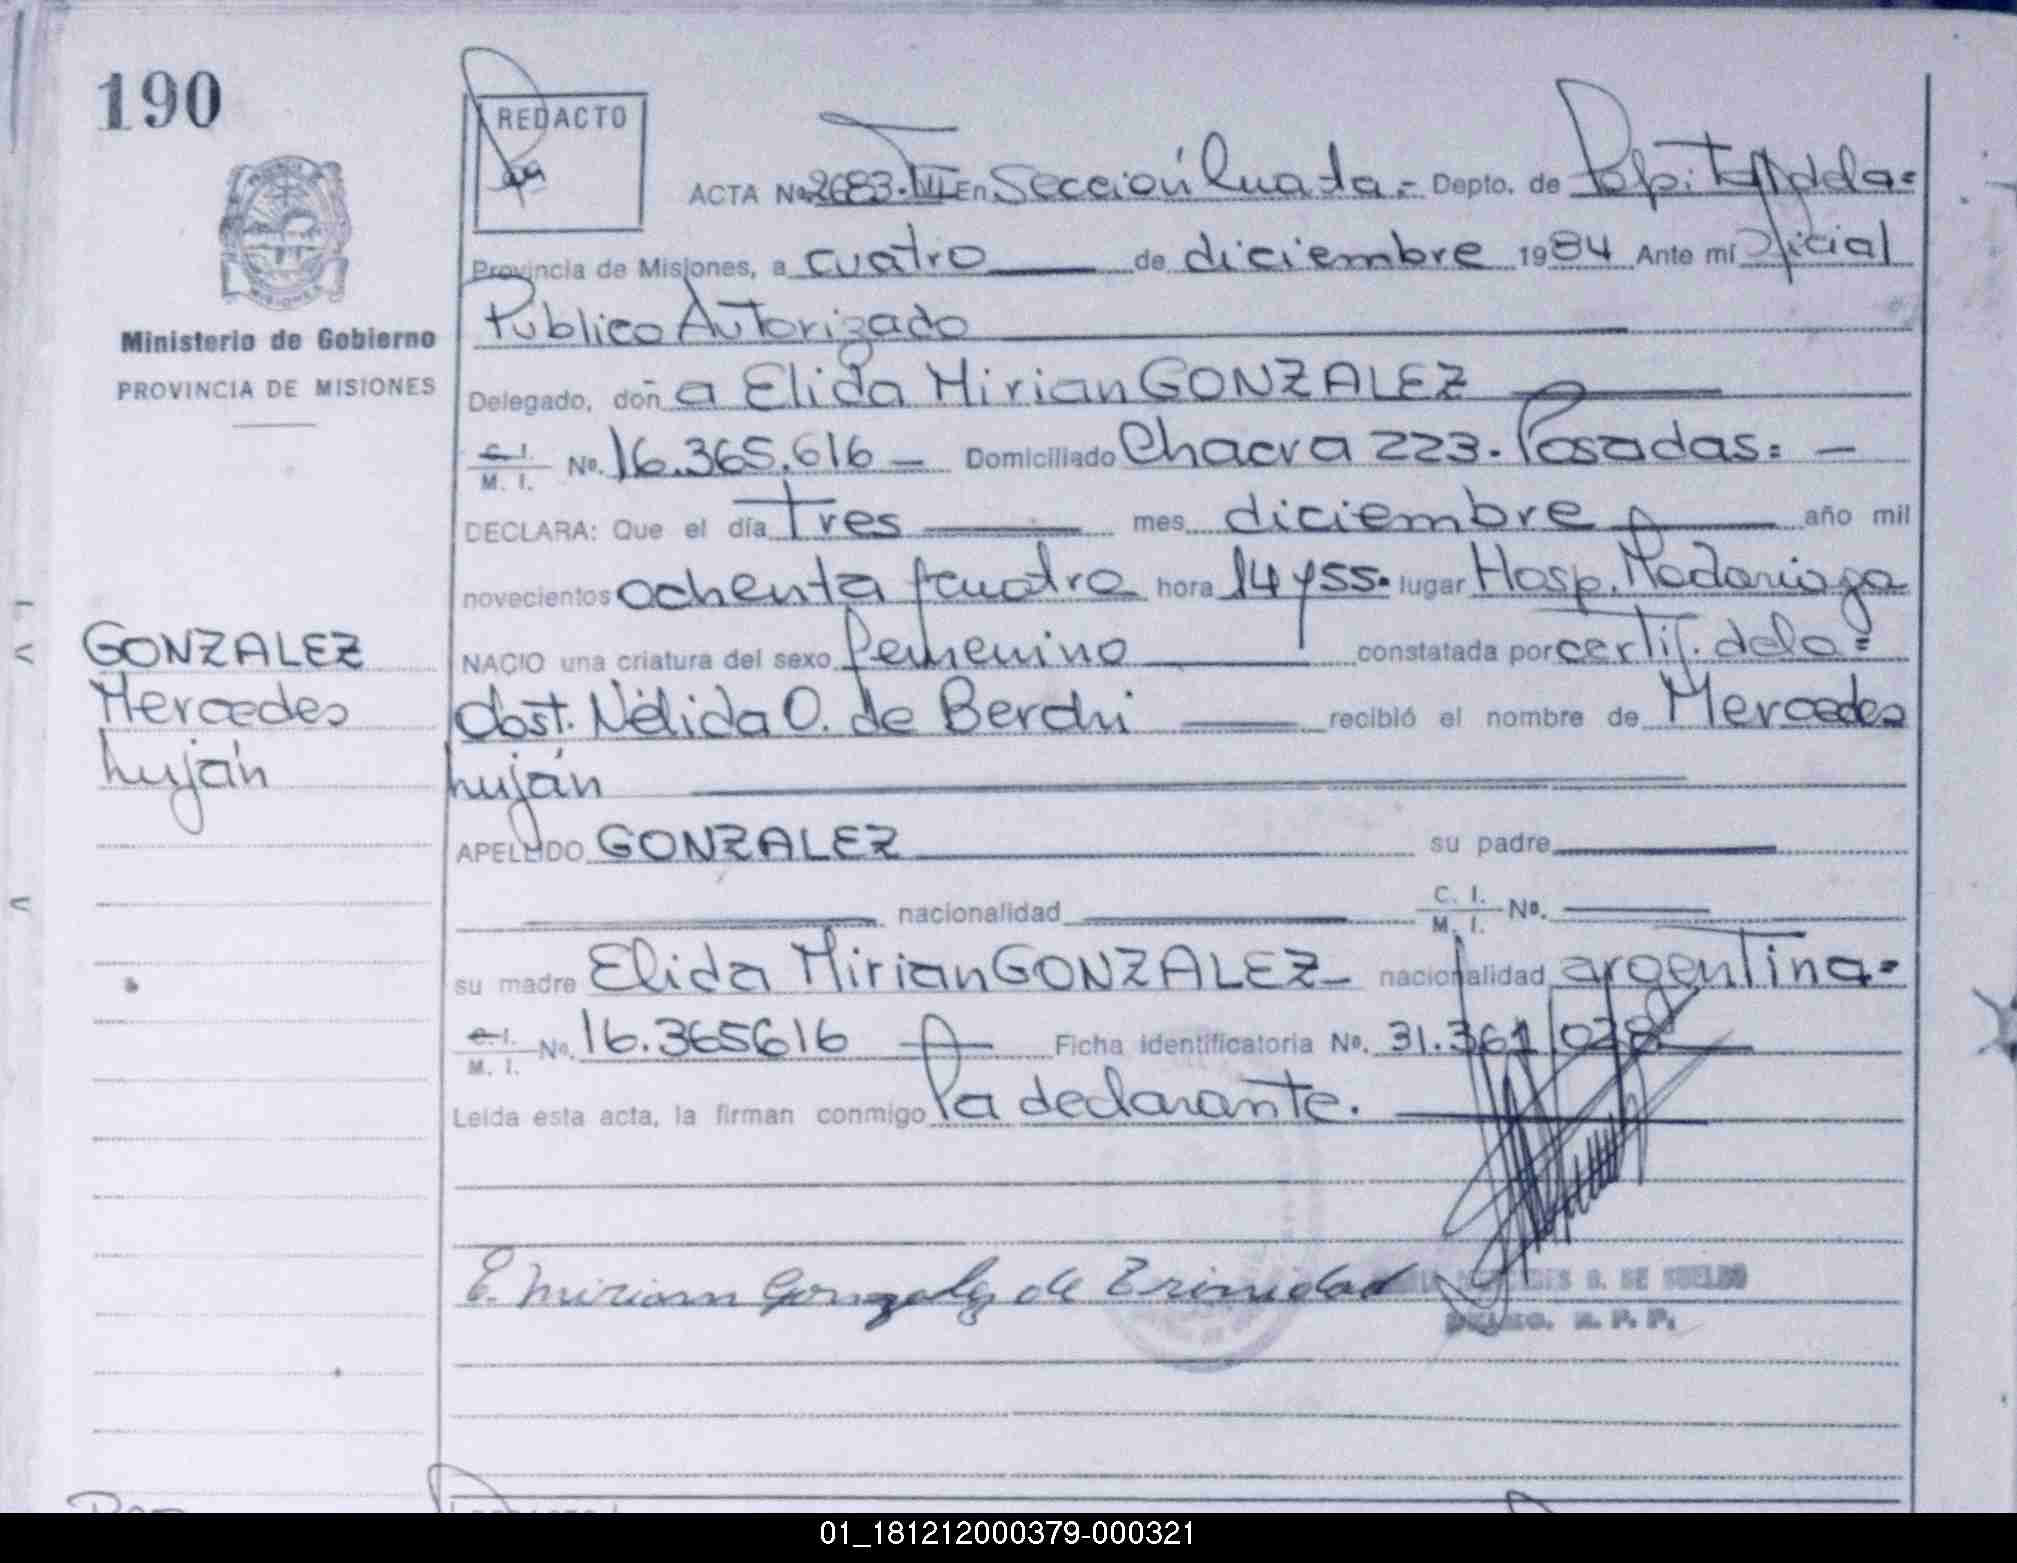 190
REDACTO
ACTA Nº 2683. En Sección Cuarta.= Depto. de Capital
Provincia de Misiones, a cuatro de diciembre 1984 Ante mí Oficial
Publico Autorizado
Ministerio de Gobierno
PROVINCIA DE MISIONES
Delegado, doñ a Elida Mirian GONZALEZ
C. I. M. I. Nº. 16.365.616 Domiciliado Chacra 223. Posadas.
DECLARA: Que el día tres mes diciembre año mil
novecientos ochenta y cuatro hora 14 y 55. lugar Hosp. Madariaga
NACIO una criatura del sexo femenino constatada por certif. de la
Obst. Nélida O. de Berchi recibió el nombre de Mercedes
Luján
GONZALEZ
Mercedes
Luján
APELLIDO GONZALEZ su padre
nacionalidad C. I. M. I. Nº.
su madre Elida Mirian GONZALEZ nacionalidad argentina
C. I. M. I. Nº. 16.365616 Ficha identificatoria Nº. 31.361.028
Leída esta acta, la firman conmigo la declarante.
E. Miriam Gonzalez de Trinidad
G. DE SUELDO
R. P. P.
01_181212000379-000321